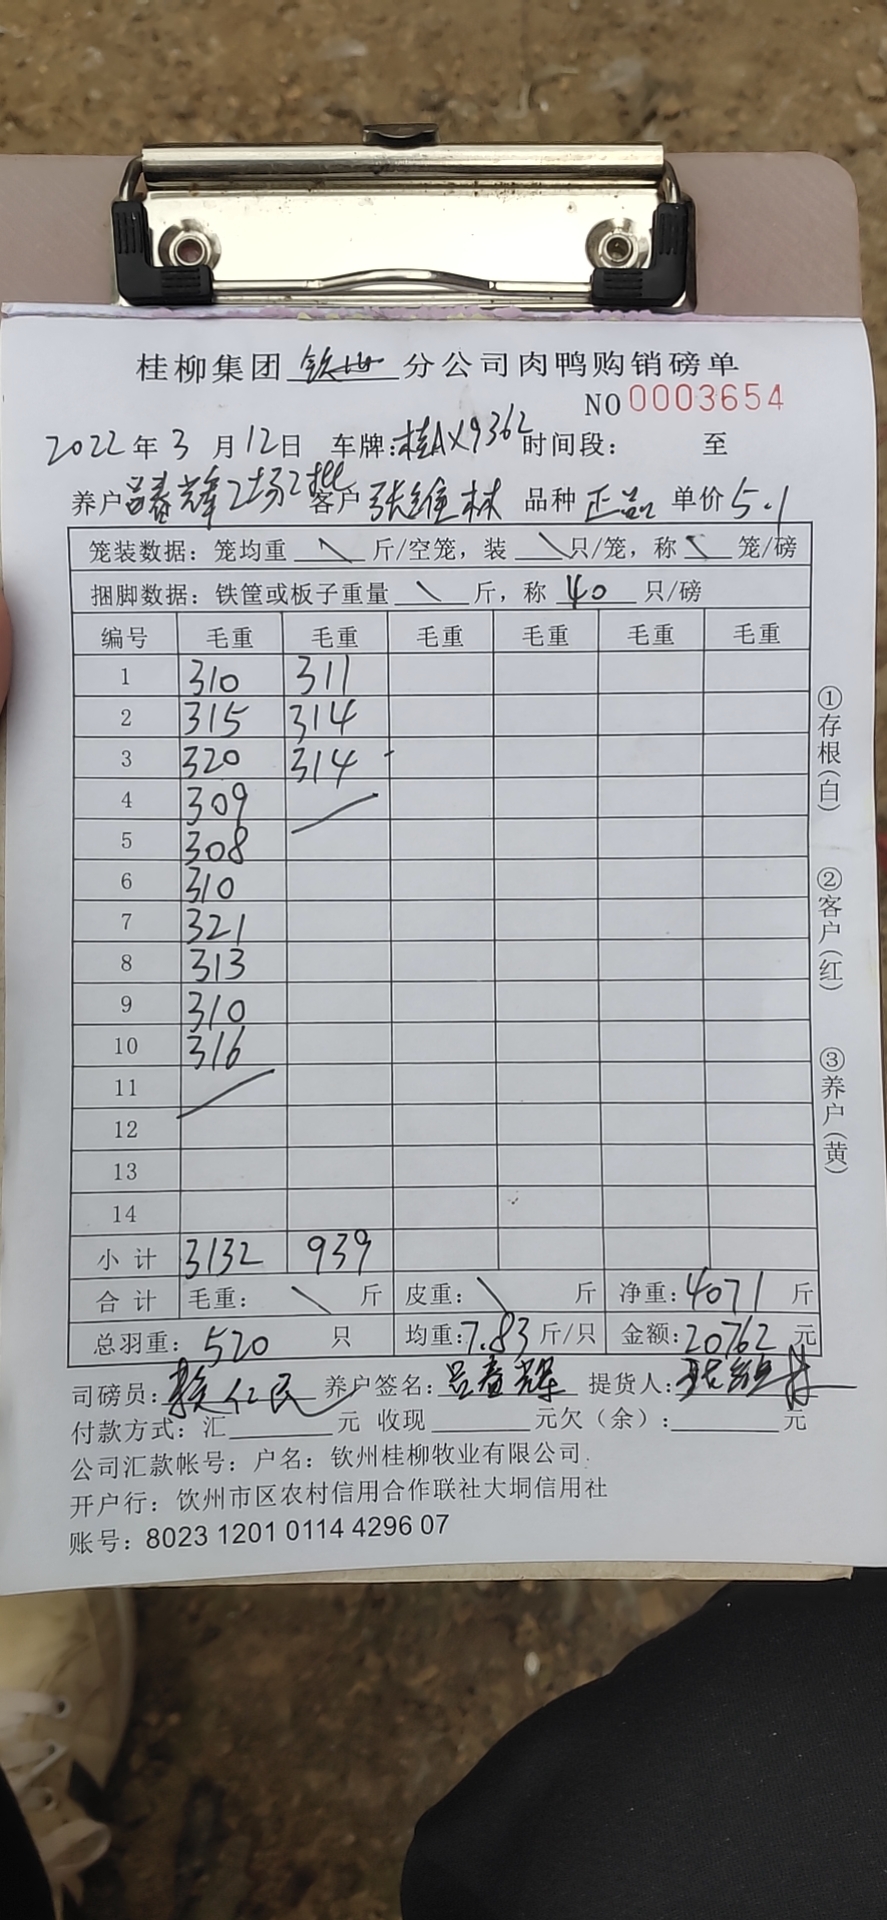 桂柳集团 钦州 分公司肉鸭购销磅单
NO 0003654
2022年3月12日 车牌:桂AX9362 时间段: 至
养户 吕春辉2场2批 客户 张维林 品种 正品 单价 5.1
笼装数据: 笼均重 \ 斤/空笼, 装 \ 只/笼, 称 \ 笼/磅
捆脚数据: 铁筐或板子重量 \ 斤, 称 40 只/磅
编号 毛重 毛重 毛重 毛重 毛重 毛重
1 310 311
2 315 314
3 320 314
4 309
5 308
6 310
7 321
8 313
9 310
10 316
11
12
13
14
小计 3132 939
合计 毛重: \ 斤 皮重: \ 斤 净重: 4071 斤
总羽重: 520 只 均重: 7.83 斤/只 金额: 20762 元
司磅员: 仁民 养户签名: 吕春辉 提货人: 张维林
付款方式: 汇 元 收现 元欠(余): 元
公司汇款帐号: 户名: 钦州桂柳牧业有限公司.
开户行: 饮州市区农村信用合作联社大垌信用社
账号: 8023 1201 0114 4296 07
①存根(白)
②客户(红)
③养户(黄)